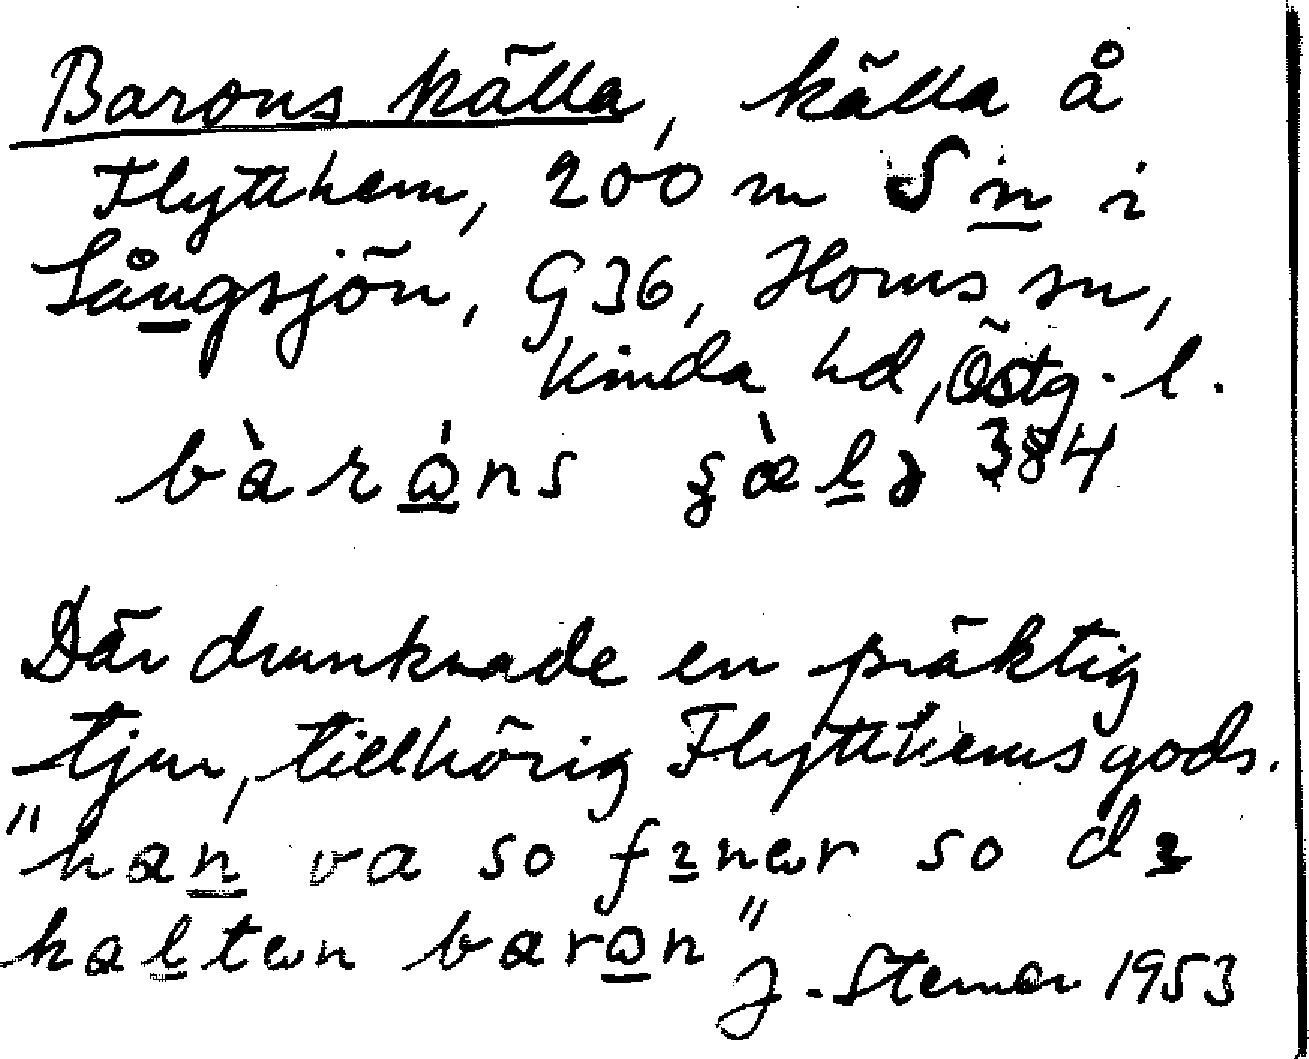 Barons källa, källa å
Flytthem, 200 m S n̲ i
Långsjön, G36, Horns sn,
Kinda hd, Östg. l.
bàrώ̲ns 384
Där drunknade en präktig
tjur, tillhörig Flytthems gods.
"han̲ va so so
barω̲n"
J. Sterner 1953